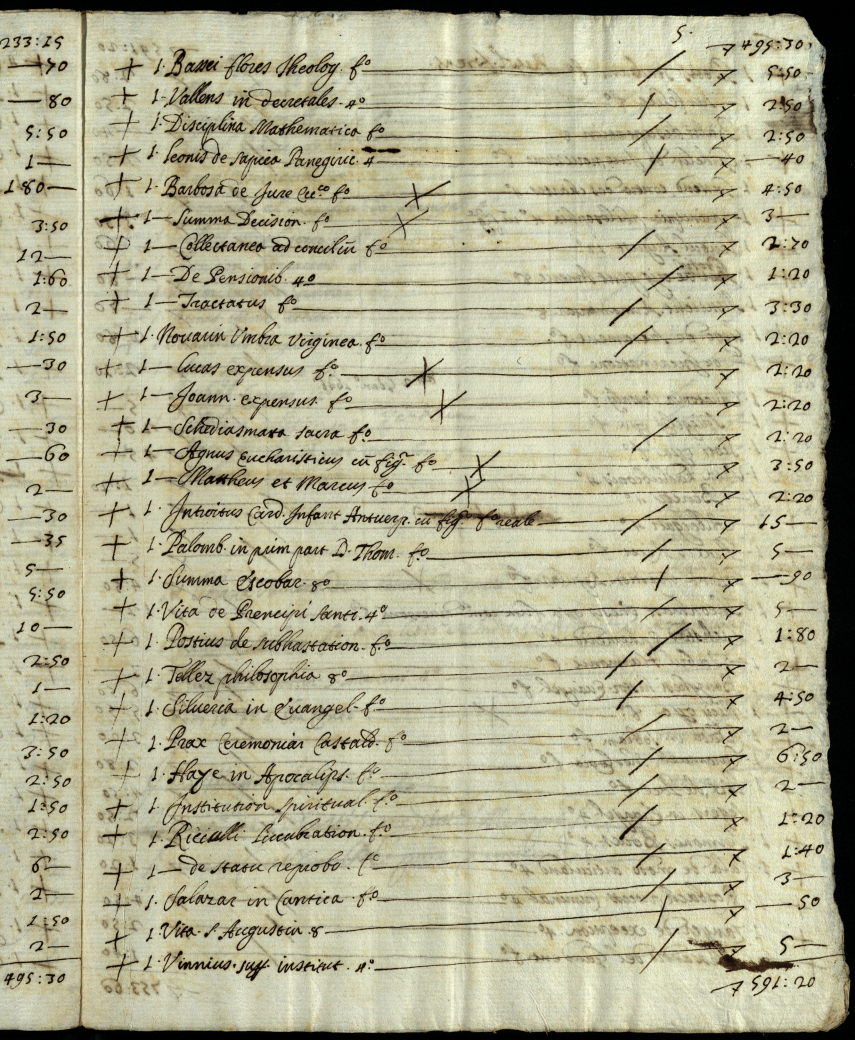 233:15
—70
—80
5:50
1—
180—
3:50
12—
1:60
2—
1:50
—30
3—
—30
—60
2—
—30
—35
5—
5:50
10—
2:50
1—
1:20
3:50
2:50
1:50
2:50
6—
2—
1:50
2—
495:30
5.
495:30
+ 1. Bassei flores theolog. fo. 5:50
+ 1. Vallens in decretales. 4o 2:50
+ 1. Disciplina Mathematica fo 2:50
+ 1. Leonis de sapien Panegiric. 4 —40
+ 1. Barbosa de Jure fo. 4:50
+ 1— Summa Decision. fo 3—
+ 1— Collectanea ad conciliũ fo 2:70
+ 1— De Pensionib. 4o 1:20
+ 1— Tractatus fo 3:30
+ 1. Nouarin Vmbra Virginea. fo 2:20
+ 1— Lucas expensus fo. 2:20
+ 1— Joann. expensus. fo 2:20
+ 1— Schediasmata sacra fo 2:20
+ 1— Agnus Eucharisticus cũ fig. fo 3:50
+ 1— Mattheus et Marcus fo 2:20
+ 1. Introitus Card. Infant Antuerp. cũ fig. fo reale 15—
+ 1. Palomb. in prim part D. Thom. fo. 5—
+ 1. Summa Escobar. 8o —90
+ 1. Vita de Prencipi santi. 4o 5—
+ 1. Postius de subhastation. fo. 1:80
+ 1. Tellez philosophia 8o 2—
+ 1. Silueira in Euangel. fo 4:50
+ 1. Prax Ceremoniar Castald. fo 2—
+ 1. Haye in Apocalips. fo 6:50
+ 1. Institution spiritual. fo 2—
+ 1. Riccialli Lucubration. fo 1:20
+ 1— de statu reprobo. fo 1:40
+ 1. Salazar in Cantica. fo 3—
+ 1. Vita. S Augustin. 8 —50
+ 1. Vinnius. sup. institut. 4o 5—
591:20